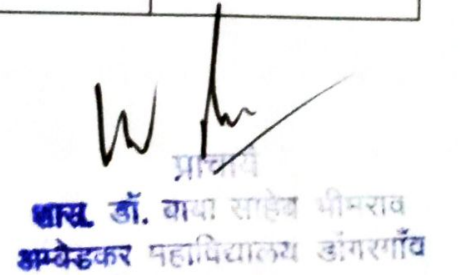 प्राचार्य
शास. डॉ. बाबा साहेब भीमराव
अम्बेडकर महाविद्यालय डोंगरगाँव